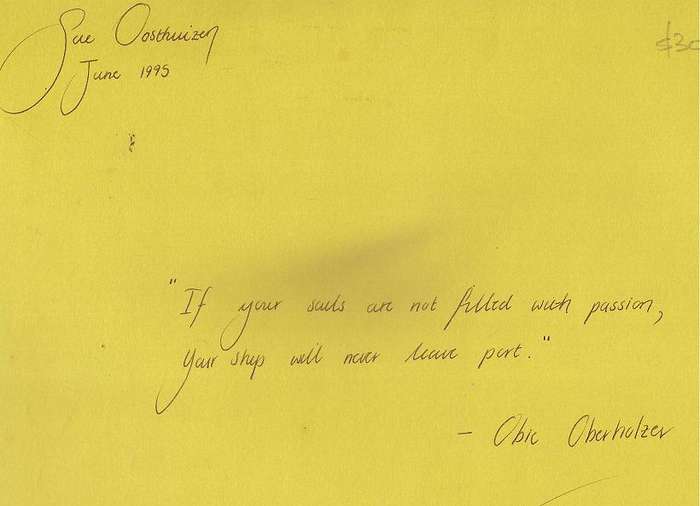 Sue Oosthuizen
June 1995
"If your sails are not filled with passion,
your ship will never leave port."
- Obie Oberholzer